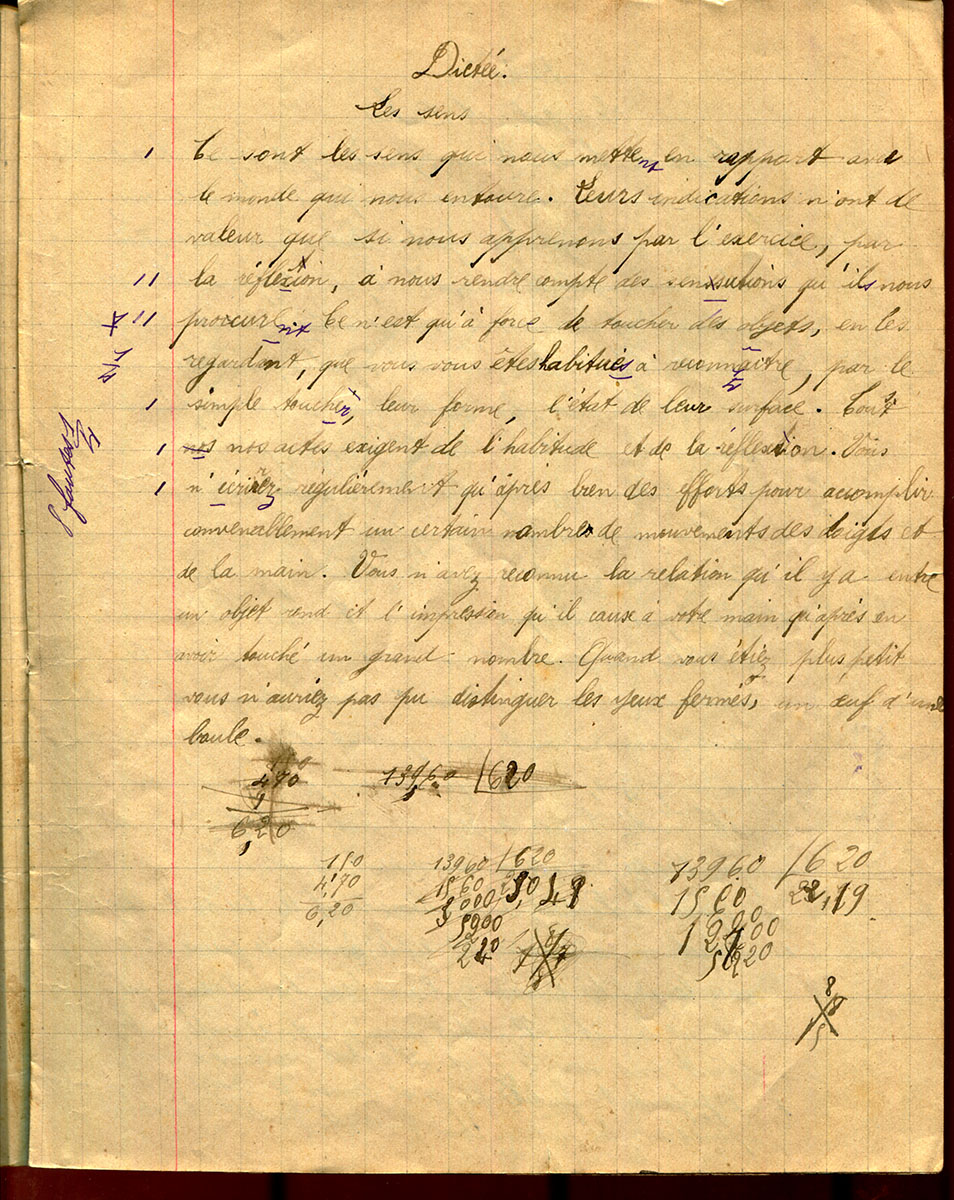 Dictée.
Les sens
Ce sont les sens qui nous mettent en rapport avec
le monde qui nous entoure. Leurs indications n'ont de
valeur que si nous apprenons par l'exercice, par
la réflexion, à nous rendre compte des sensations qu'ils nous
procurent Ce n'est qu'à force de toucher des objets, en les
regardant, que vous vous êtes habitués à reconnaître, par le
simple toucher, leur forme, l'état de leur surface. Tout
nos nos actes exigent de l'habitude et de la réflexion. Vous
n'écrirez régulièrement qu'àprès bien des efforts pour accomplir
convenablement un certain nombre de mouvements des doigts et
de la main. Vous n'avez reconnu la relation qu'il y a entre
un objet rond et l'impression qu'il caux à votre main qu'après en
avoir touché un grand nombre. Quand vous étiez plus petit
vous n'auriez pas pu distinguer les yeux fermés, un œuf d'une
boule.
4,70
13960 620
6,20
1,50 13960 620 13960 620
4,70 1560 1560 22,19
6,20
5900
220